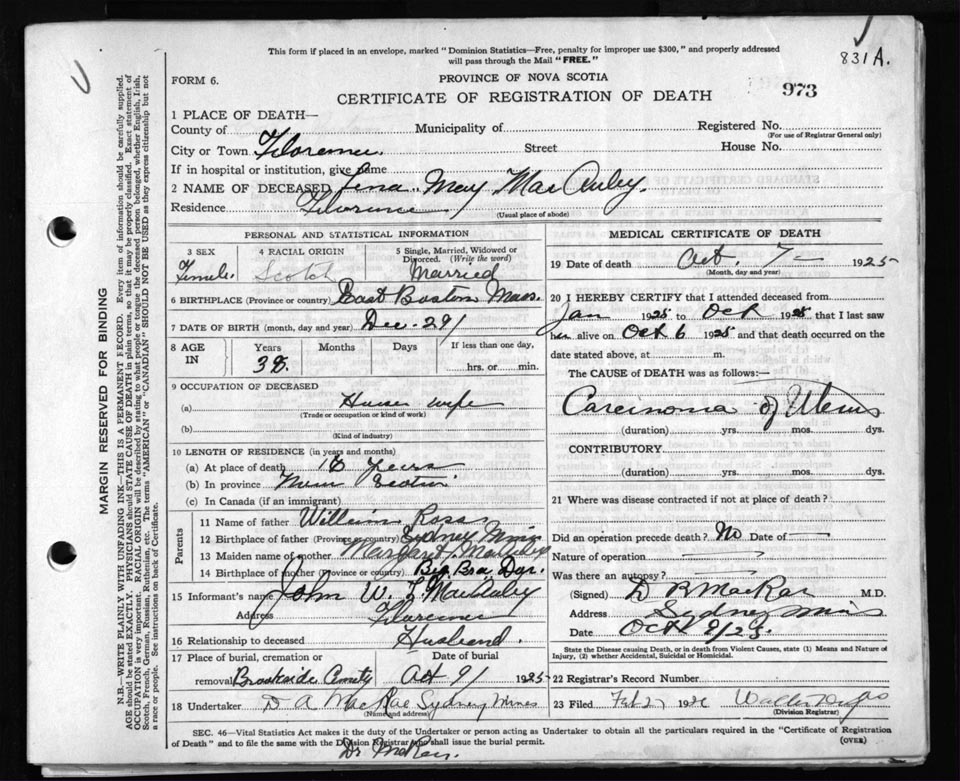 This form if placed in an envelope, marked "Dominion Statistics—Free, penalty for improper use $300," and properly addressed
will pass through the Mail "FREE."
831A.
FORM 6.
PROVINCE OF NOVA SCOTIA
973
CERTIFICATE OF REGISTRATION OF DEATH
1 PLACE OF DEATH—
County of Municipality of Registered No.
(For use of Registrar General only)
City or Town Florence Street House No.
If in hospital or institution, give name
2 NAME OF DECEASED Lena May MacAuley.
Residence Florence
(Usual place of abode)
PERSONAL AND STATISTICAL INFORMATION
3 SEX 4 RACIAL ORIGIN 5 Single, Married, Widowed or
Divorced. (Write the word)
Female Scotch Married
6 BIRTHPLACE (Province or country) East Boston Mass.
7 DATE OF BIRTH (month, day and year) Dec. 29/
8 AGE IN Years Months Days If less than one day,
38. hrs. or min.
9 OCCUPATION OF DECEASED
(a) House wife
(Trade or occupation or kind of work)
(b)
(Kind of industry)
10 LENGTH OF RESIDENCE (in years and months)
(a) At place of death years
(b) In province Nova Scotia
(c) In Canada (if an immigrant)
Parents
11 Name of father William Ross
12 Birthplace of father (Province or country) Sydney Mines
13 Maiden name of mother Margaret
14 Birthplace of mother (Province or country) Big Bra Dor.
15 Informant's name John W. MacAuley
Address Florence
16 Relationship to deceased Husband.
17 Place of burial, cremation or removal Date of burial
Brookside Oct 9/ 1925
18 Undertaker D A MacRae Sydney Mines
(Name and address)
MEDICAL CERTIFICATE OF DEATH
19 Date of death Oct. 7— 1925
(Month, day and year)
20 I HEREBY CERTIFY that I attended deceased from
Jan 1925 to Oct 1925 that I last saw
her alive on Oct 6 1925 and that death occurred on the
date stated above, at m.
The CAUSE of DEATH was as follows:—
Carcinoma of Uterus
(duration) yrs. mos. dys.
CONTRIBUTORY
(duration) yrs. mos. dys.
21 Where was disease contracted if not at place of death?
Did an operation precede death? No Date of —
Nature of operation —
Was there an autopsy? —
(Signed) D R MacRae M.D.
Address Sydney Mines
Date Oct 9/25.
State the Disease causing Death, or in death from Violent Causes, state (1) Means and Nature of
Injury, (2) whether Accidental, Suicidal or Homicidal.
22 Registrar's Record Number
23 Filed Feb 192 Walter
(Division Registrar)
SEC. 46—Vital Statistics Act makes it the duty of the Undertaker or person acting as Undertaker to obtain all the particulars required in the "Certificate of Registration
of Death" and to file same with the Division Registrar who shall issue the burial permit.
(OVER)
Dr McRae.
MARGIN RESERVED FOR BINDING
N.B.—WRITE PLAINLY WITH UNFADING INK—THIS IS A PERMANENT RECORD. Every item of information should be carefully supplied.
AGE should be stated EXACTLY. PHYSICIANS should STATE CAUSE OF DEATH in plain terms, so that it may be properly classified. Exact statement of
OCCUPATION is very important. RACIAL ORIGIN will be described by stating to what people or tongue the deceased person belonged, whether English, Irish,
Scotch, French, German, Russian, Ruthenian, etc. The terms "AMERICAN" or "CANADIAN" SHOULD NOT BE USED as they express citizenship but not
a race or people. See instructions on back of Certificate.